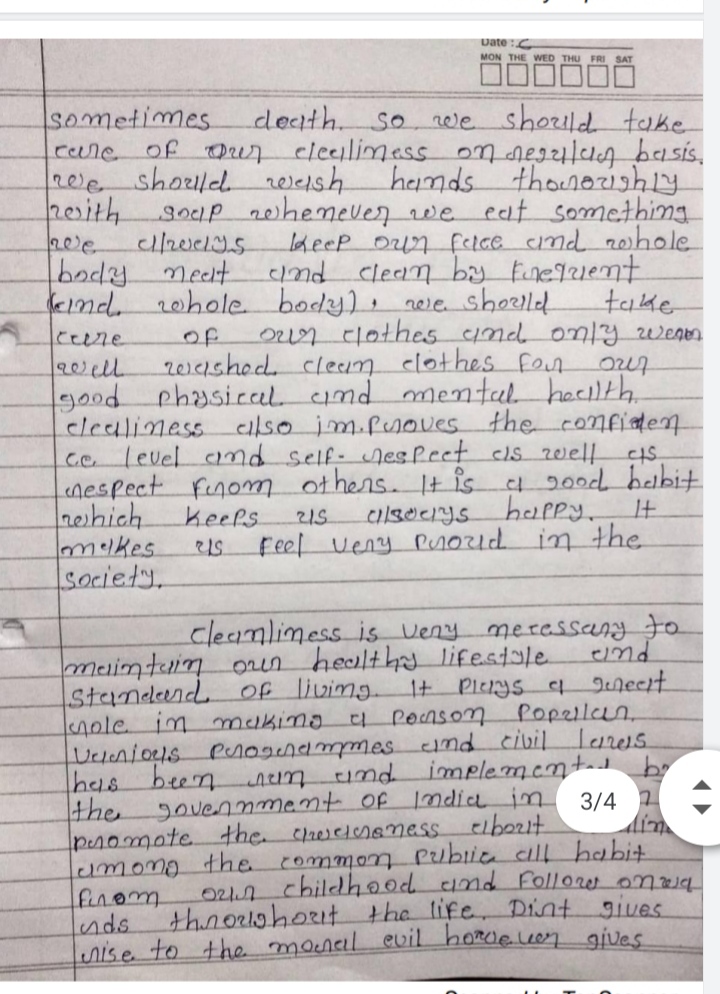 Date :
MON THE WED THU FRI SAT
sometimes death. so we should take
care of our clealiness on regular basis.
we should wash hands thoroughly
with soap whenever we eat something
we always keep our face and whole
body neat and clean by frequent
(and whole body). we should take
care of our clothes and only wear
well washed clean clothes for our
good physical and mental health.
clealiness also improves the confiden
ce level and self-respect as well as
respect from others. It is a good habit
which keeps us always happy. It
makes us feel very proud in the
society.
cleanliness is very necessary to
maintain our healthy lifestyle and
standard of living. It plays a great
role in making a person popular.
Various programmes and civil laws
has been run and implemented
the government of India in
3/4
promote the awareness about
among the common public all habit
from our childhood and follow onwa
rds throughout the life. Dirt gives
rise to the moral evil however gives